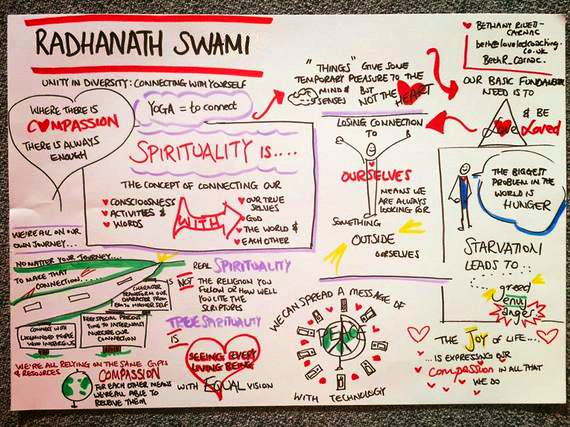 RADHANATH SWAMI
UNITY IN DIVERSITY: CONNECTING WITH YOURSELF
WHERE THERE IS
COMPASSION
THERE IS ALWAYS
ENOUGH
YOGA = to connect
SPIRITUALITY IS....
THE CONCEPT OF CONNECTING OUR
CONSCIOUSNESS
ACTIVITIES &
WORDS
WITH
OUR TRUE
SELVES
GOD
THE WORLD &
EACH OTHER
"THINGS" GIVE SOME
TEMPORARY PLEASURE TO THE
MIND &
SENSES
BUT
NOT THE HEART
BETHANY
CARNAC
.co.uk
Beth_Carnac.
OUR BASIC FUNDAMENTAL
NEED IS TO
Love
& BE
Loved
LOSING CONNECTION
TO
OURSELVES
MEANS WE
ARE ALWAYS
LOOKING FOR
SOMETHING
OUTSIDE
OURSELVES
THE BIGGEST
PROBLEM IN THE
WORLD IS
HUNGER
STARVATION
LEADS TO...
greed
envy
anger
WE'RE ALL ON OUR
OWN JOURNEY...
NO MATTER YOUR JOURNEY....
TO MAKE THAT
CONNECTION....
CHARACTER
TRANSFORM OUR
CHARACTER FROM
KEEP SPECIAL PERIOD
TIME TO INTERNALLY
NURTURE OUR
CONNECTION
CONNECT WITH
LIKEMINDED PEOPLE
REAL SPIRITUALITY
IS NOT THE RELIGION YOU
FOLLOW OR HOW WELL
YOU CITE THE
SCRIPTURES
TRUE SPIRITUALITY
IS
SEEING EVERY
LIVING BEING
WITH EQUAL VISION
WE'RE ALL RELYING ON THE SAME GIFTS
& RESOURCES
COMPASSION
FOR EACH OTHER MEANS
WE'RE ALL ABLE TO
RECEIVE THEM
WE CAN SPREAD A MESSAGE OF
WITH TECHNOLOGY
THE JOY OF LIFE...
... IS EXPRESSING OUR
COMPASSION IN ALL THAT
WE DO